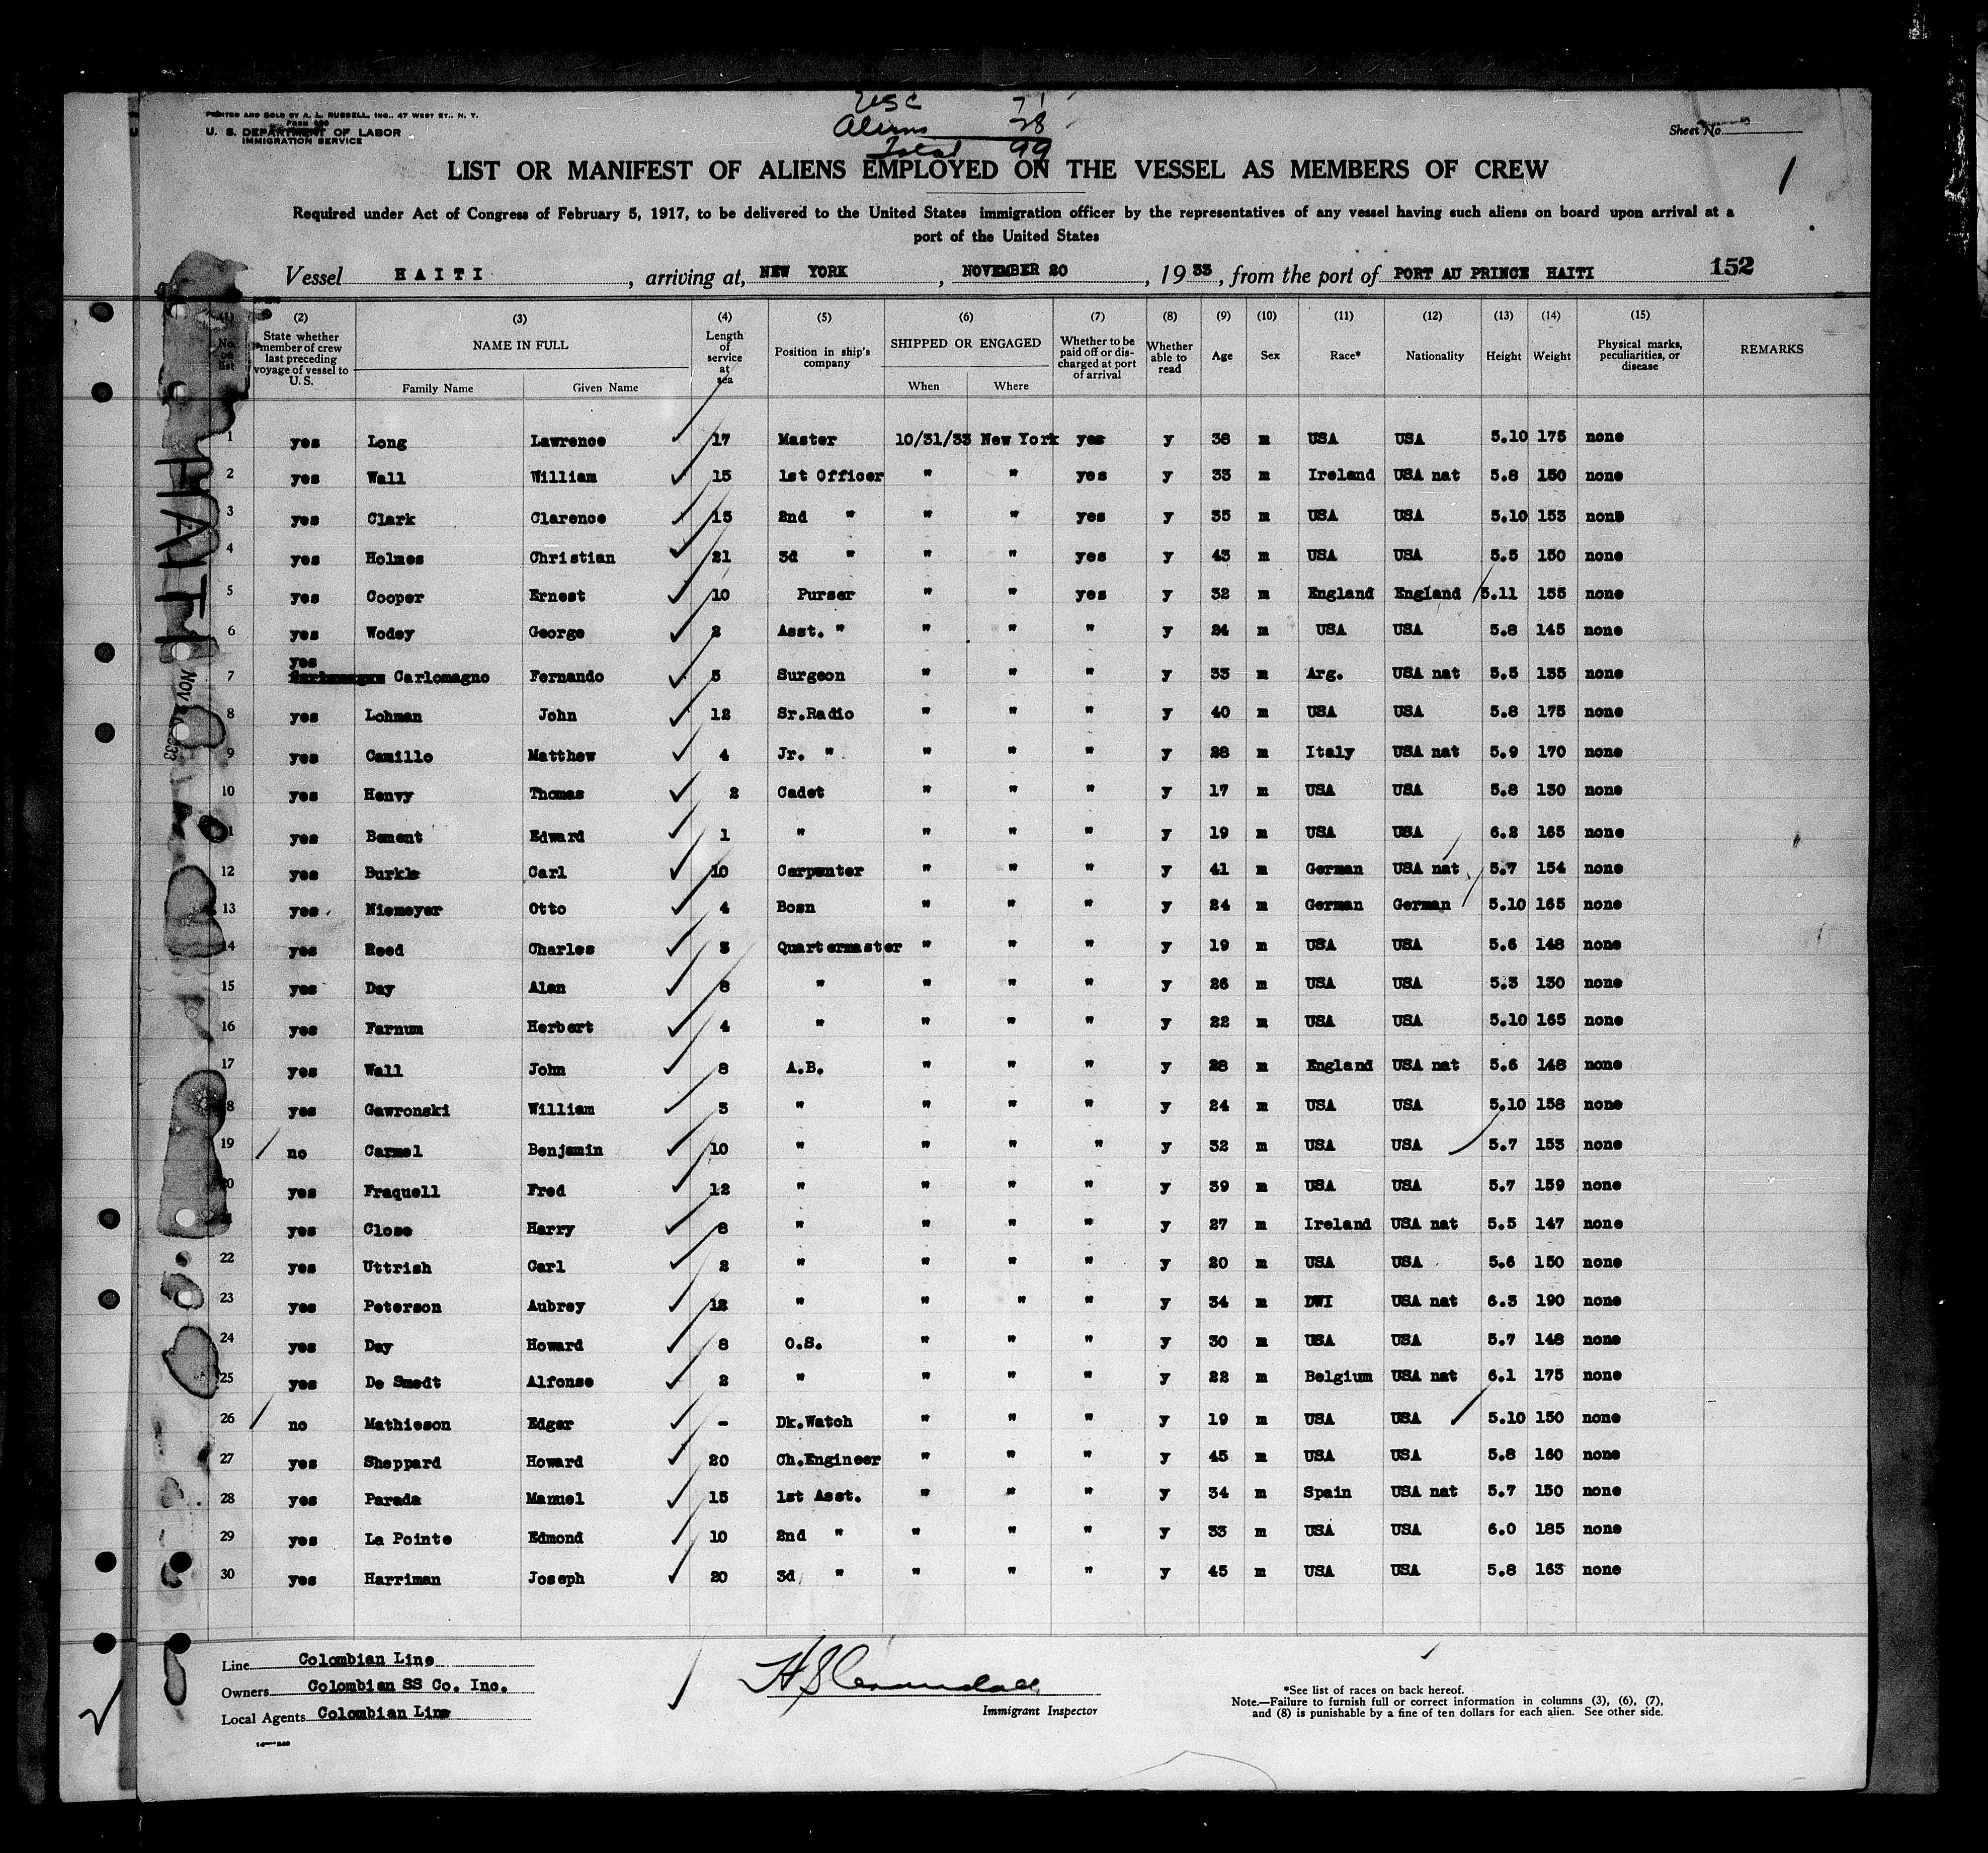 USC 71
Aliens 28
Total 99
PRINTED AND SOLD BY A. L. RUSSELL, INC., 47 WEST ST., N. Y.
U. S. DEPARTMENT OF LABOR
IMMIGRATION SERVICE
Sheet No.
1
LIST OR MANIFEST OF ALIENS EMPLOYED ON THE VESSEL AS MEMBERS OF CREW
Required under Act of Congress of February 5, 1917, to be delivered to the United States immigration officer by the representatives of any vessel having such aliens on board upon arrival at a
port of the United States
Vessel HAITI, arriving at, NEW YORK, NOVEMBER 20, 1933, from the port of PORT AU PRINCE HAITI 152
(1) No. on list (2) State whether member of crew last preceding voyage of vessel to U. S. (3) NAME IN FULL Family Name Given Name (4) Length of service at sea (5) Position in ship's company (6) SHIPPED OR ENGAGED When Where (7) Whether to be paid off or discharged at port of arrival (8) Whether able to read (9) Age (10) Sex (11) Race* (12) Nationality (13) Height (14) Weight (15) Physical marks, peculiarities, or disease REMARKS
1 yes Long Lawrence 17 Master 10/31/33 New York yes y 38 m USA USA 5.10 175 none
2 yes Wall William 15 1st Officer " " yes y 33 m Ireland USA nat 5.8 150 none
3 yes Clark Clarence 15 2nd " " " yes y 35 m USA USA 5.10 153 none
4 yes Holmes Christian 21 3d " " " yes y 43 m USA USA 5.5 150 none
5 yes Cooper Ernest 10 Purser " " yes y 32 m England England 5.11 155 none
6 yes Wodey George 2 Asst. " " " " y 24 m USA USA 5.8 145 none
7 yes Carlomagno Fernando 5 Surgeon " " " y 33 m Arg. USA nat 5.5 135 none
8 yes Lohman John 12 Sr.Radio " " " y 40 m USA USA 5.8 175 none
9 yes Camillo Matthew 4 Jr. " " " " y 28 m Italy USA nat 5.9 170 none
10 yes Henvy Thomas 2 Cadet " " " y 17 m USA USA 5.8 130 none
11 yes Bement Edward 1 " " " " y 19 m USA USA 6.2 165 none
12 yes Burkle Carl 10 Carpenter " " " y 41 m German USA nat 5.7 154 none
13 yes Niemeyer Otto 4 Bosn " " " y 24 m German German 5.10 165 none
14 yes Reed Charles 3 Quartermaster " " " y 19 m USA USA 5.6 148 none
15 yes Day Alan 8 " " " " y 26 m USA USA 5.3 130 none
16 yes Farnum Herbert 4 " " " " y 22 m USA USA 5.10 165 none
17 yes Wall John 8 A.B. " " " y 28 m England USA nat 5.6 148 none
18 yes Gawronski William 3 " " " " y 24 m USA USA 5.10 158 none
19 no Carmel Benjamin 10 " " " " y 32 m USA USA 5.7 153 none
20 yes Fraquell Fred 12 " " " " y 39 m USA USA 5.7 159 none
yes Close Harry 8 " " " " y 27 m Ireland USA nat 5.5 147 none
22 yes Uttrish Carl 2 " " " " y 20 m USA USA 5.6 150 none
23 yes Peterson Aubrey 12 " " " " y 34 m DWI USA nat 6.3 190 none
24 yes Day Howard 8 O.S. " " " y 30 m USA USA 5.7 148 none
25 yes De Smedt Alfonse 2 " " " " y 22 m Belgium USA nat 6.1 175 none
26 no Mathieson Edgar - Dk.Watch " " " y 19 m USA USA 5.10 150 none
27 yes Sheppard Howard 20 Ch.Engineer " " " y 45 m USA USA 5.8 160 none
28 yes Parada Manuel 15 1st Asst. " " " y 34 m Spain USA nat 5.7 150 none
29 yes La Pointe Edmond 10 2nd " " " " y 33 m USA USA 6.0 185 none
30 yes Harriman Joseph 20 3d " " " " y 45 m USA USA 5.8 163 none
HAITI
Line Colombian Line
Owners Colombian SS Co. Inc.
Local Agents Colombian Line
Immigrant Inspector
*See list of races on back hereof.
Note.—Failure to furnish full or correct information in columns (3), (6), (7),
and (8) is punishable by a fine of ten dollars for each alien. See other side.